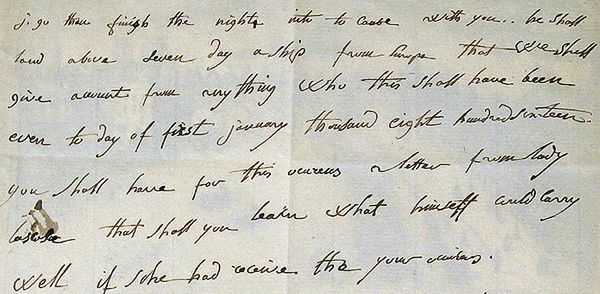 j go then finish the night into to cause with you.. he shall
land above seven day a ship from Europe that we shall
give account from anything who this shall have been
even to day of first january thousand eight hundred sixteen.
you shall have for this ocurens a letter from lady
that shall you learn what himself could carry
well if she had receive the your